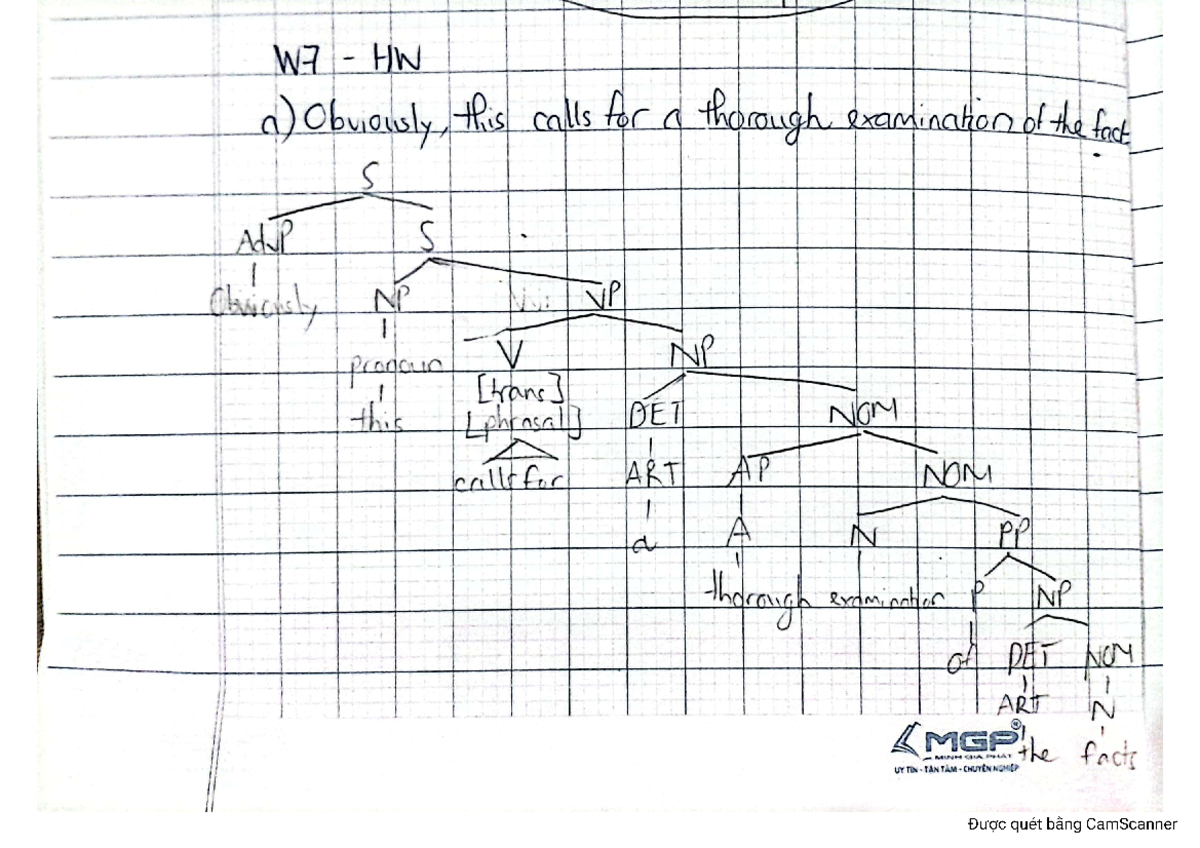 W7 - HW
a) Obviously, this calls for a thorough examination of the fact
.
S
AdvP S
Obviously NP VP
pronoun V NP
this [trans] DET NOM
[phrasal]
calls for ART AP NOM
a A N PP
thorough examination P NP
of DET NOM
ART N
the facts
MGP
MINH GIA PHÁT
UY TÍN - TẬN TÂM - CHUYÊN NGHIỆP
Được quét bằng CamScanner